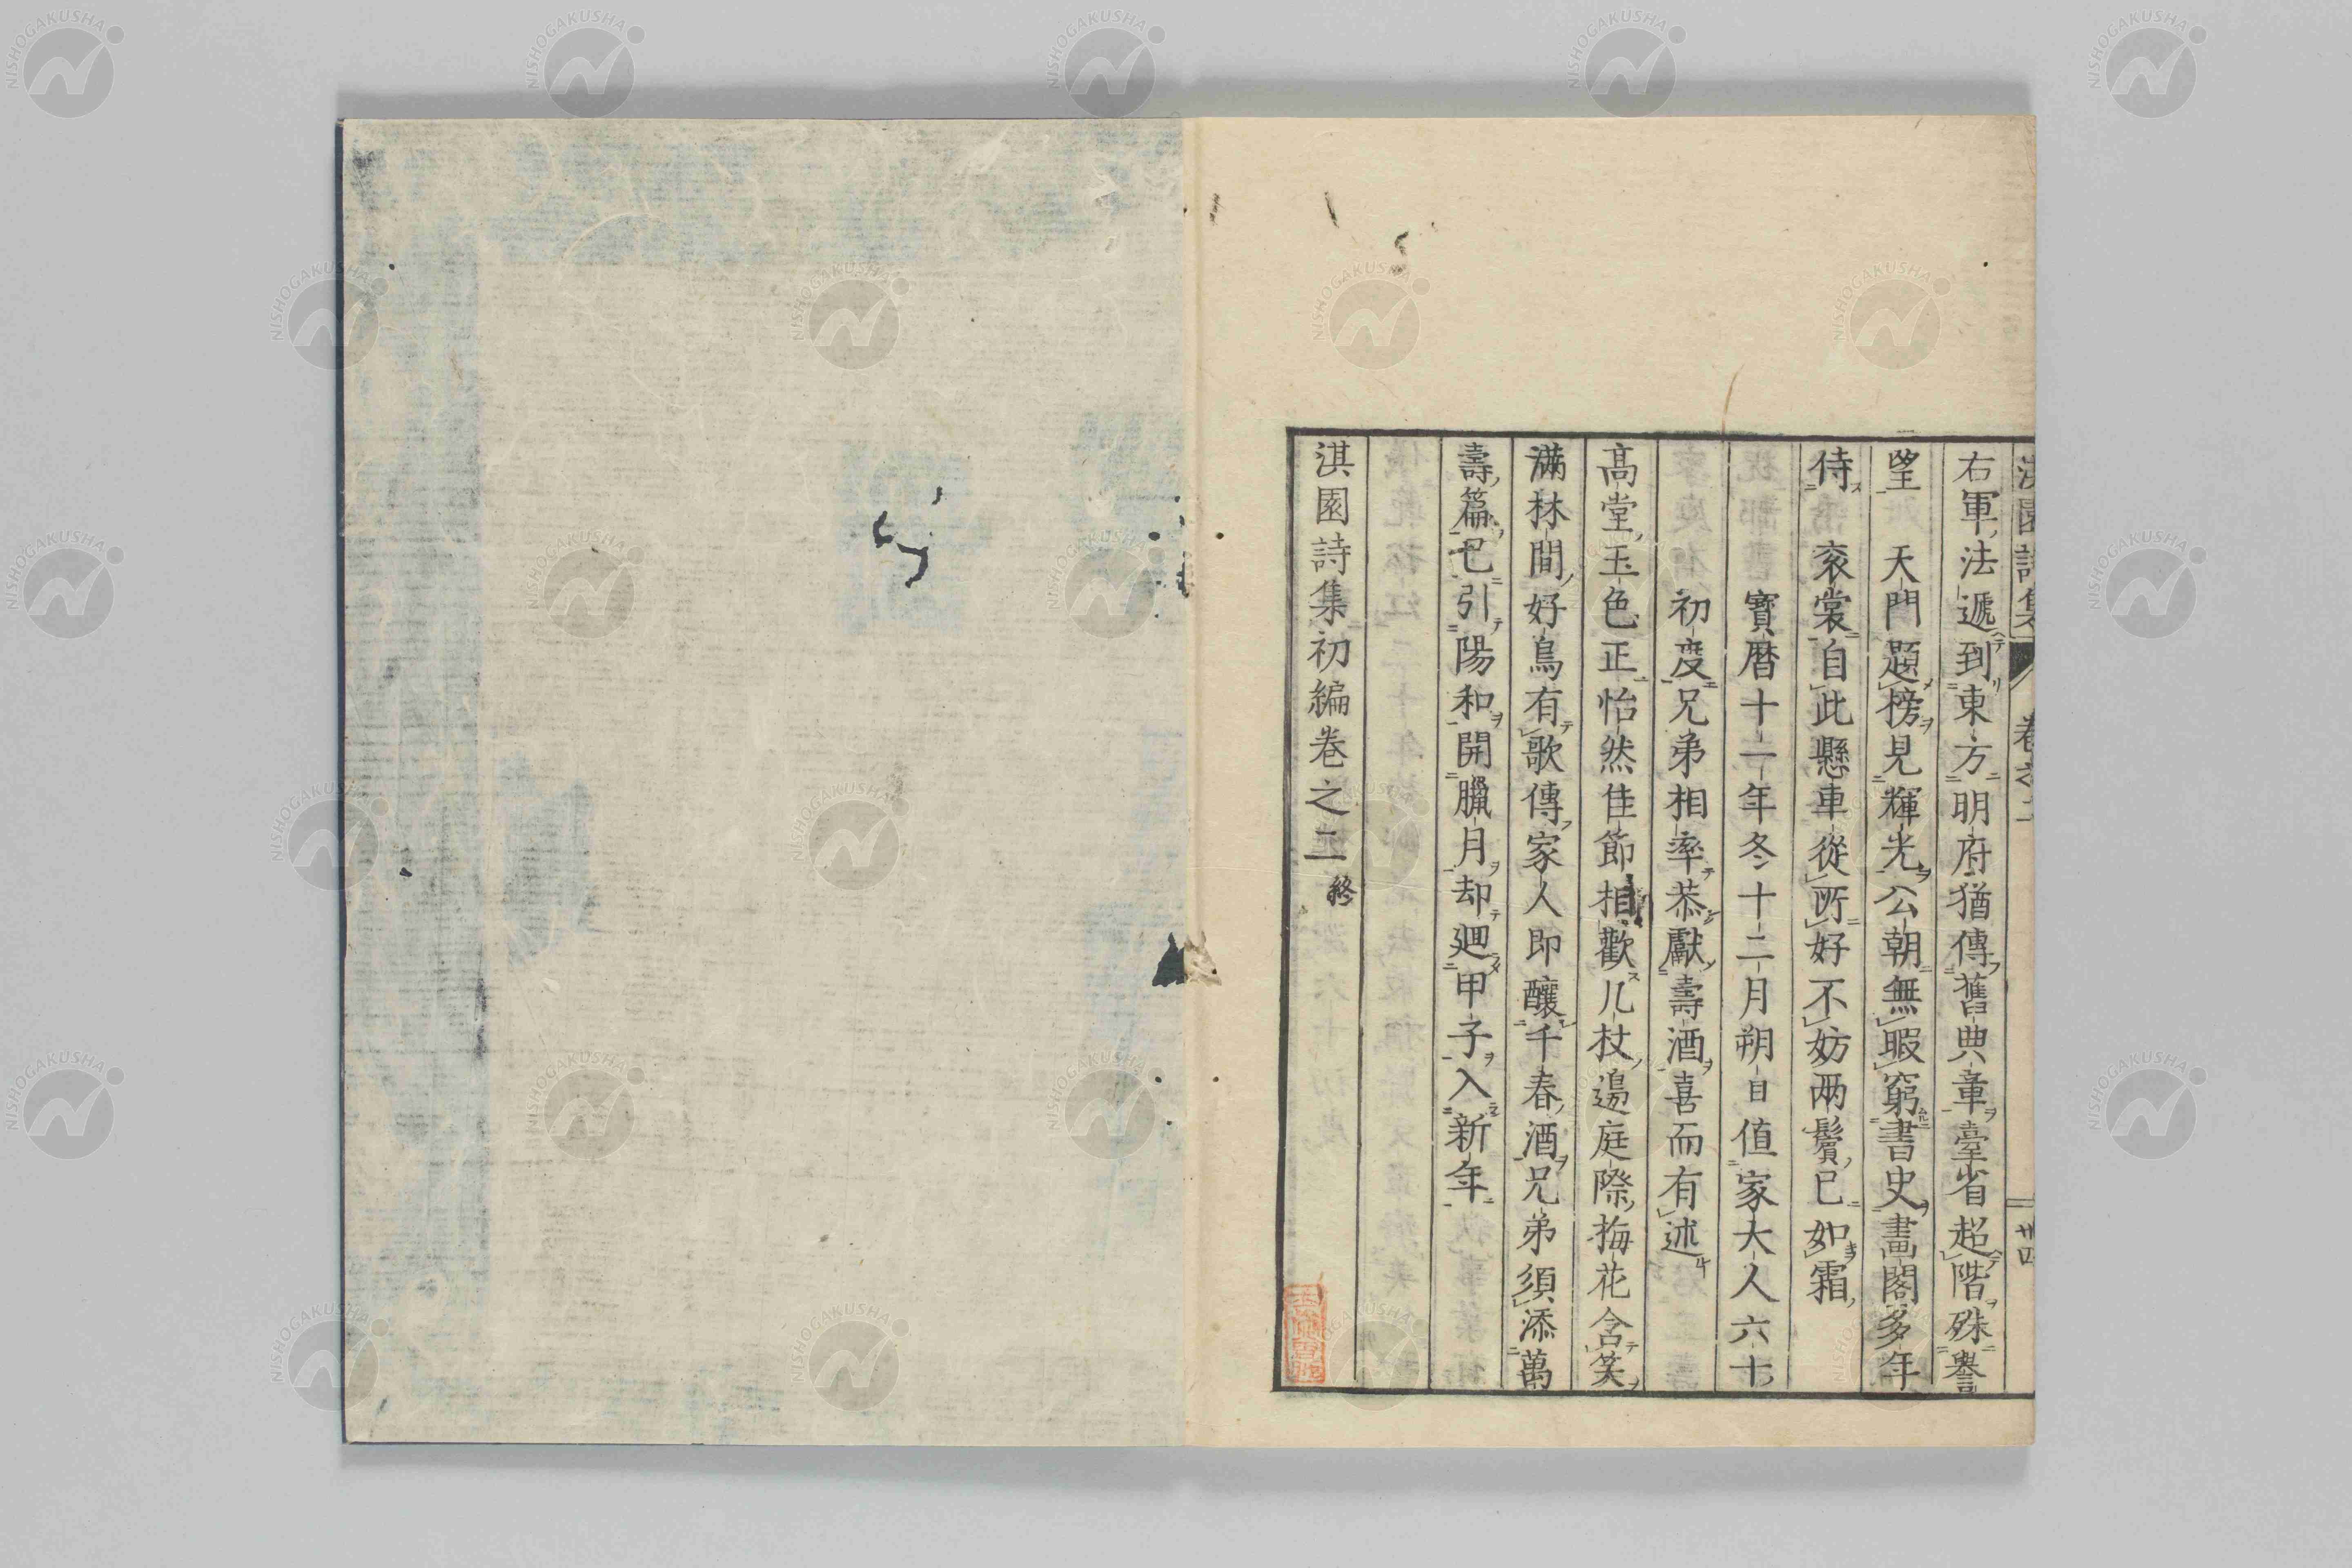 右軍法遞到東方明府猶傳舊典章臺省超階殊譽
望 天門題榜見輝光公朝無暇窮書史畫閣多年
侍 衮裳自此懸車從所好不妨兩鬢已如霜
寳暦十一年冬十二月朔日值家大人六十
初度兄弟相率恭獻壽酒喜而有述
髙堂玉色正怡然佳節相歡几杖邊庭際梅花含笑
滿林間好鳥有歌傳家人即釀千春酒兄弟須添萬
壽篇已引陽和開臘月却廻甲子入新年
淇園詩集初編卷之二終
NISHOGAKUSHA